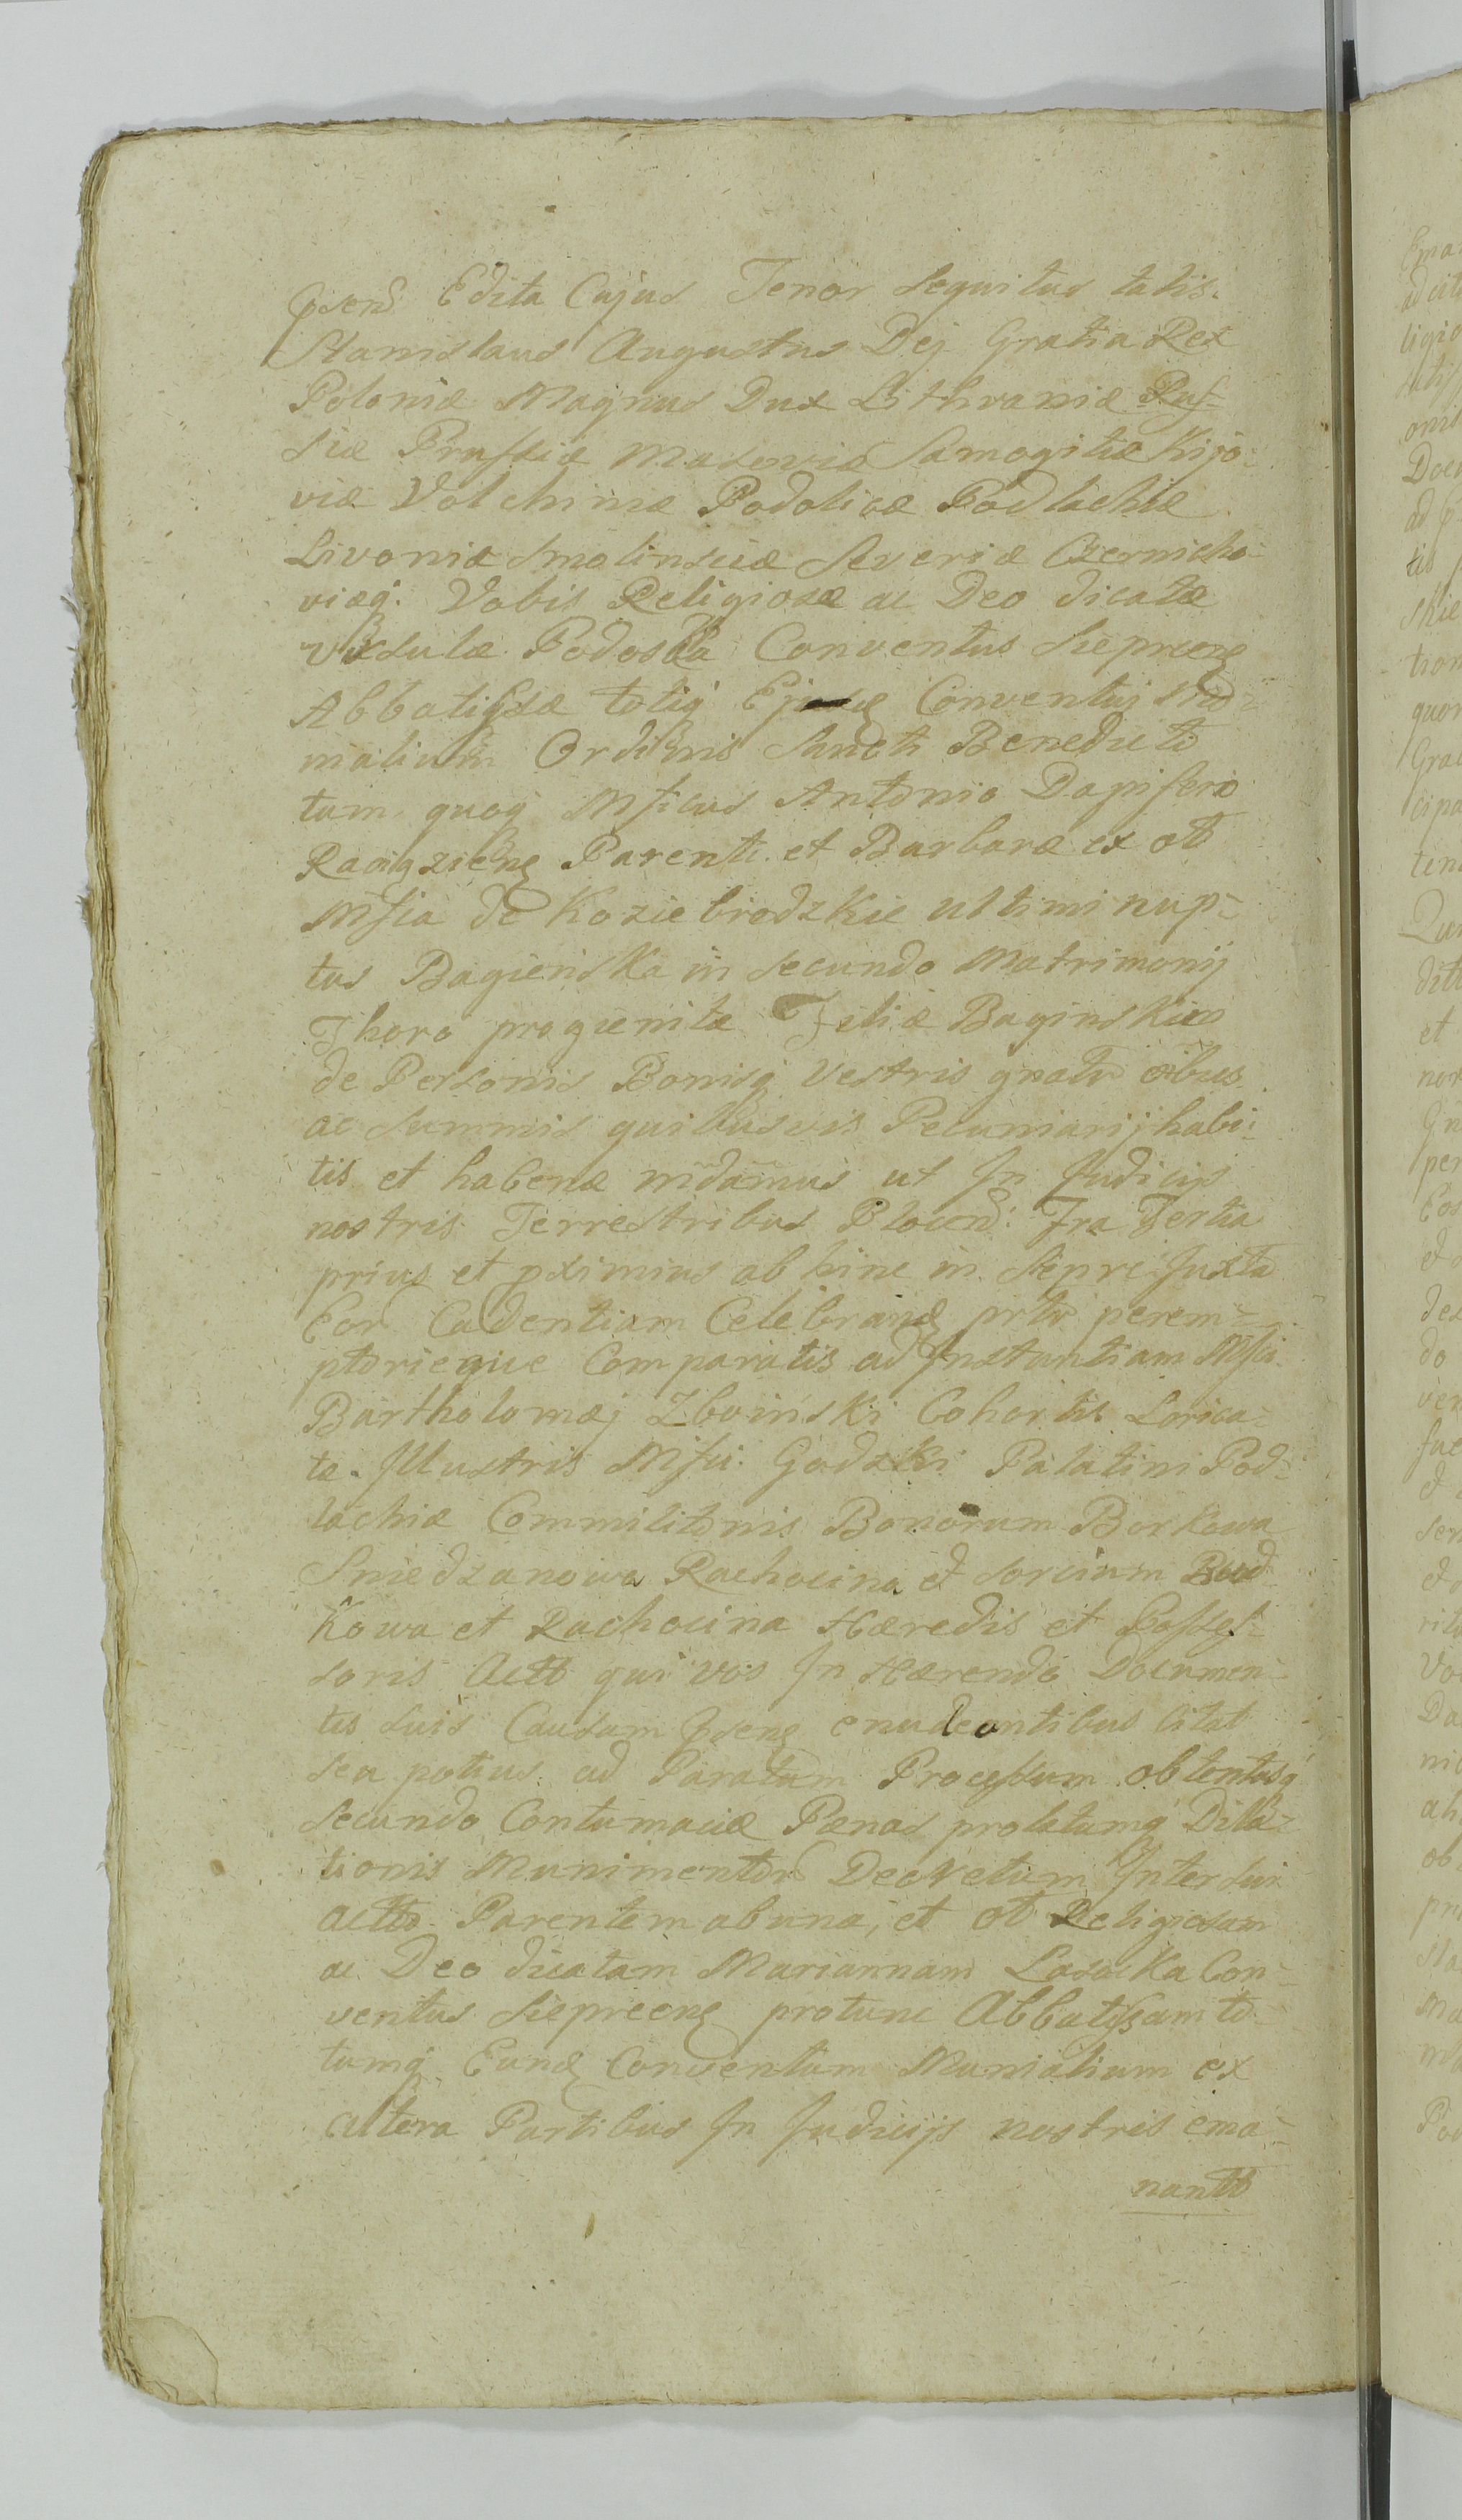 Edita Cujus Tenor Sequitur talis.
Stanislaus Augustus Dej Gratia Rex
Poloniæ Magnus Dux Lithvaniæ Rus-
siæ Prussiæ Masoviæ Samogitiæ Kijo-
viæ Volchiniæ Podoliæ Podlachiæ
Livoniæ Smolinsciæ Severiæ Czernicho-
viæq. Vobis Religiosæ ac Deo dicatæ
Conventus Sieprceng
Abbatissæ totiq Conventuj
Ordinis Sancti Benedicti
tum quoq Antonio Dapifero
Parenti et Barbaræ ex ot
de Koziebrodzkie ultimi nup-
tus Bagienska in secundo Matrimonij
Thoro progienitæ Filiæ Baginskie
de Personis Bonisq Vestris gnalr oibus
ac Summis quibusvis Pecuniarij habi-
tis et habenæ mdamus ut In Judicijs
nostris Terrestribus Plocend. Fra Tertia
prius et pximius ab hinc in Siepre Juxta
Eor Cadentiam Celebrand prtr perem-
ptorieque Comparatis ad Instantiam Msci
Bartholomæj Zboinski Cohortis Lorica-
te Illustris Msci Godzki Palatini Pod-
lachiæ Commilitonis Bonorum Borkowa
Sniedzanowa Rachocina et sorcium Bud
kowa et Rachocina Hæredis et Posses-
soris Actt qui vos In Hærendo Documen-
tis suis Causam enudeantibus citat
seu potius ad Paratam Processum obtentasq
secundo Contumaciæ Pænas prolatumq Dila-
tionis Munimentor Decretum Inter sui
actto Parentem ab una, et ot Religiosam
ac Deo dicatam Mariannam Lasocka Con-
ventus Sieprceng protunc Abbatissam to-
tumq Eund Conventum Monialium ex
altera Partibus In Judicijs nostris ema-
nantt